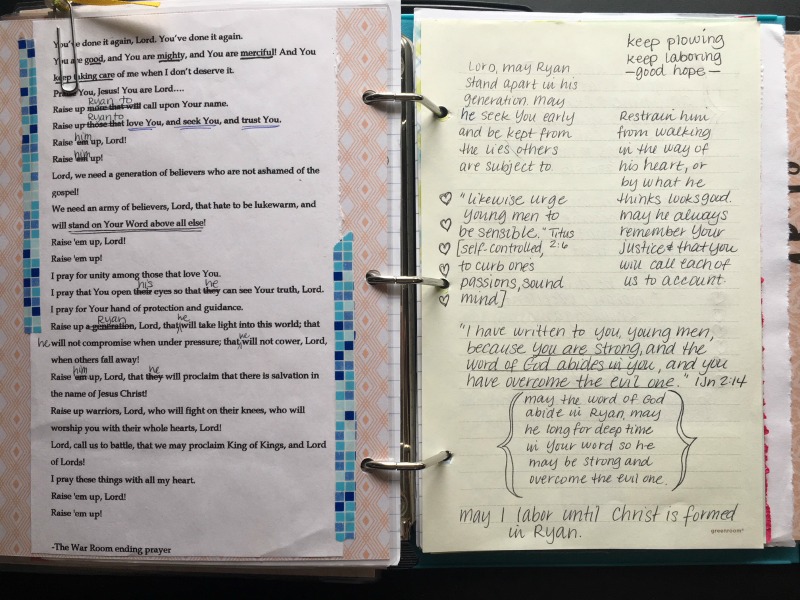 You've done it again, Lord. You've done it again.
You are good, and You are mighty, and You are merciful! And You
keep taking care of me when I don't deserve it.
Praise You, Jesus! You are Lord….
Ryan to
Raise up more that will call upon Your name.
Ryan to
Raise up those that love You, and seek You, and trust You.
him
Raise 'em up, Lord!
him
Raise 'em up!
Lord, we need a generation of believers who are not ashamed of the
gospel!
We need an army of believers, Lord, that hate to be lukewarm, and
will stand on Your Word above all else!
Raise 'em up, Lord!
Raise 'em up!
I pray for unity among those that love You.
his he
I pray that You open their eyes so that they can see Your truth, Lord.
I pray for Your hand of protection and guidance.
Ryan he
Raise up a generation, Lord, that will take light into this world; that
he will not compromise when under pressure; that he will not cower, Lord,
when others fall away!
him he
Raise 'em up, Lord, that they will proclaim that there is salvation in
the name of Jesus Christ!
Raise up warriors, Lord, who will fight on their knees, who will
worship you with their whole hearts, Lord!
Lord, call us to battle, that we may proclaim King of Kings, and Lord
of Lords!
I pray these things with all my heart.
Raise 'em up, Lord!
Raise 'em up!
-The War Room ending prayer
keep plowing
keep laboring
—good hope—
Lord, may Ryan
stand apart in his
generation. may
he seek You early
and be kept from
the lies others
are subject to
"Likewise urge
young men to
be sensible." Titus
2:6
[self-controlled,
to curb one's
passions, sound
mind]
Restrain him
from walking
in the way of
his heart, or
by what he
thinks looks good.
may he always
remember Your
justice & that you
will call each of
us to account
"I have written to you, young men,
because you are strong, and the
word of God abides in you, and you
have overcome the evil one." 1 Jn 2:14
may the word of God
abide in Ryan. may
he long for deep time
in Your word so he
may be strong and
overcome the evil one.
may I labor until Christ is formed
in Ryan.
greenroom